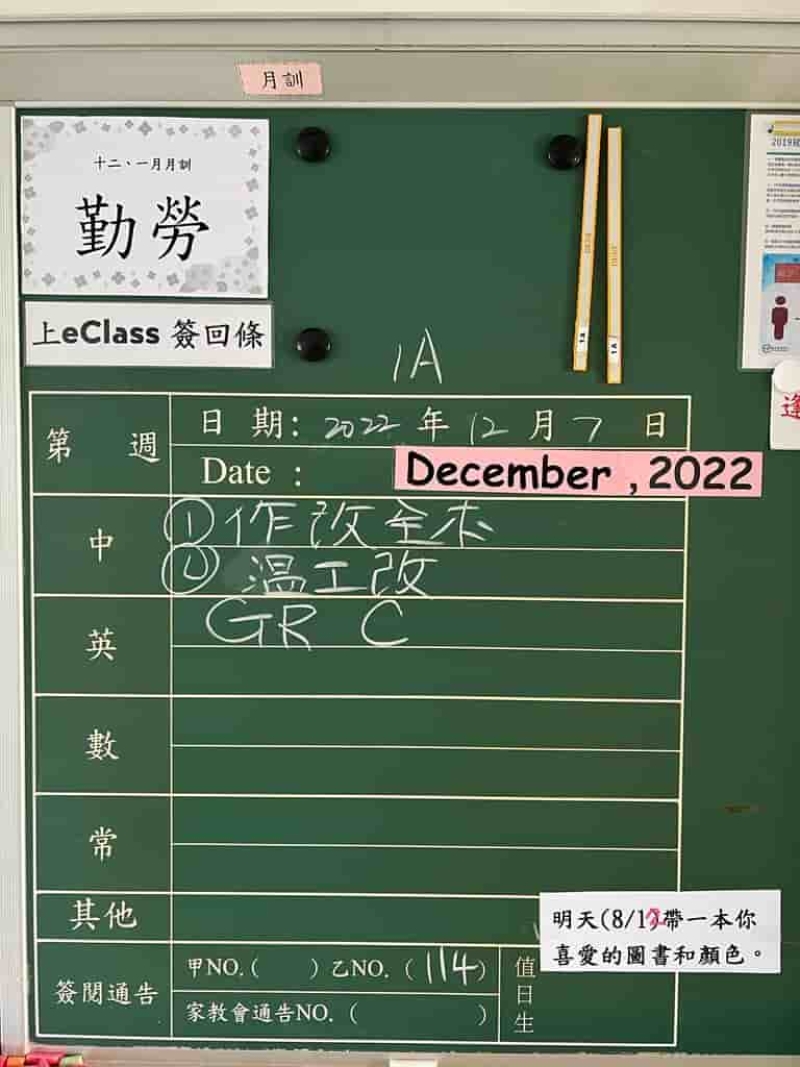 月訓
十二、一月月訓
勤勞
上eClass 簽回條
1A
1A
1A
2019冠
逢
第 週
日 期: 2022 年 12 月 7 日
Date : December , 2022
中
① 作改全本
② 溫工改
英
GR C
數
常
其他
明天(8/12)帶一本你
喜愛的圖書和顏色。
簽閱通告
甲NO.( ) 乙NO. ( 114 )
家教會通告NO. ( )
值日生